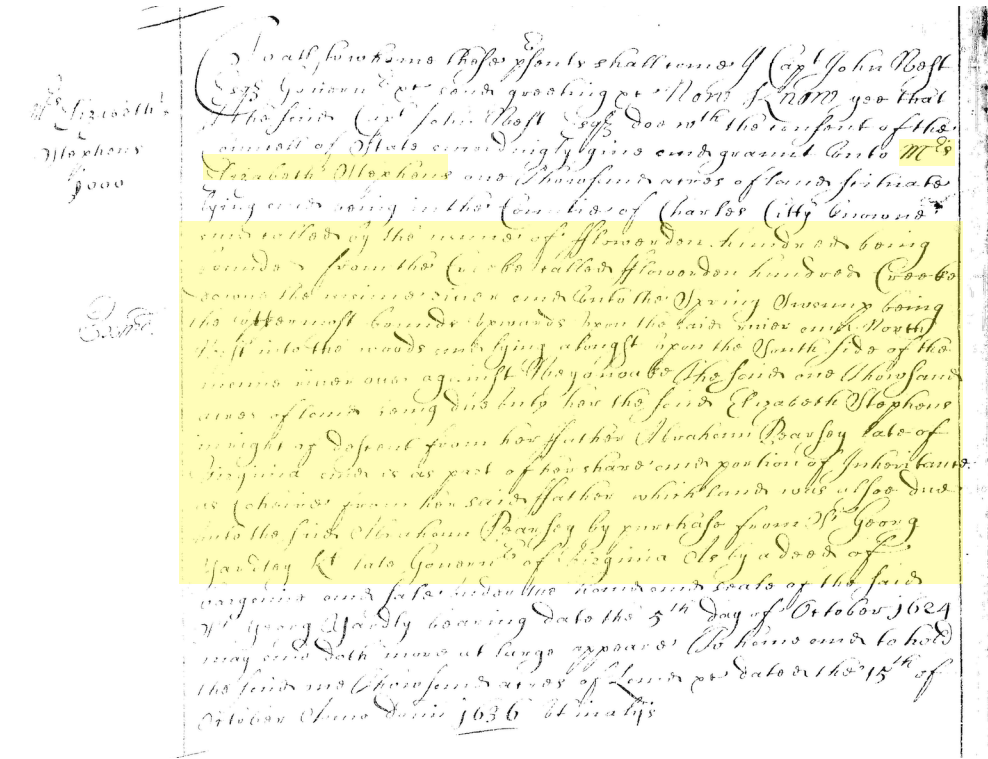 Mrs Elizabeth
Stephens
1000
To all to whome these psents shall come I Capt John West
Esqr Governr &c send greeting &c Now Know yee that
I the said Capt John West Esqr doe wth the consent of the
Councell of State accordingly give and graunt unto Mrs
Elizabeth Stephens one Thowsand acres of land scituate
lying and being in the Countie of Charles Citty knowne
and called by the name of fflowerden hundred being
bounded from the Creeke called fflowerden hundred Creeke
downe the maine river and unto the Spring Swamp being
the uttermost bounds upwards upon the said river and North
West into the woods and lying alongst upon the South side of the
maine river over against Weyanoake the said one Thowsand
acres of land being due unto her the said Elizabeth Stephens
in right of descent from her ffather Abraham Pearsey late of
Virginia and is as part of her share and portion of Inheritance
as coheire from her said ffather which land was alsoe due
unto the said Abraham Pearsey by purchase from Sr Georg
Yardley Kt late Governr of Virginia As by a deed of
bargaine and sale under the hand and seale of the said
Sr Georg Yardly bearing date the 5th day of October 1624
may and doth more at large appeare To have and to hold
the said one Thowsand acres of Land &c dated the 15th of
October Anno domi 1636 ut in alijs